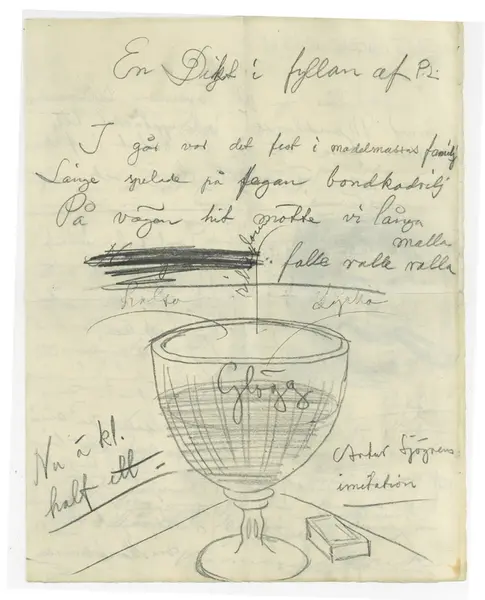 En Dikt i fyllan af P.L.
I går var det fest i madelmasras familj
Länge spelade på fogan bondkadrilj
På vägan hit mötte vi långa
malla
falle ralle ralla
Glögg
Nu ä kl.
half ett
Artur Sjögrens
imitation